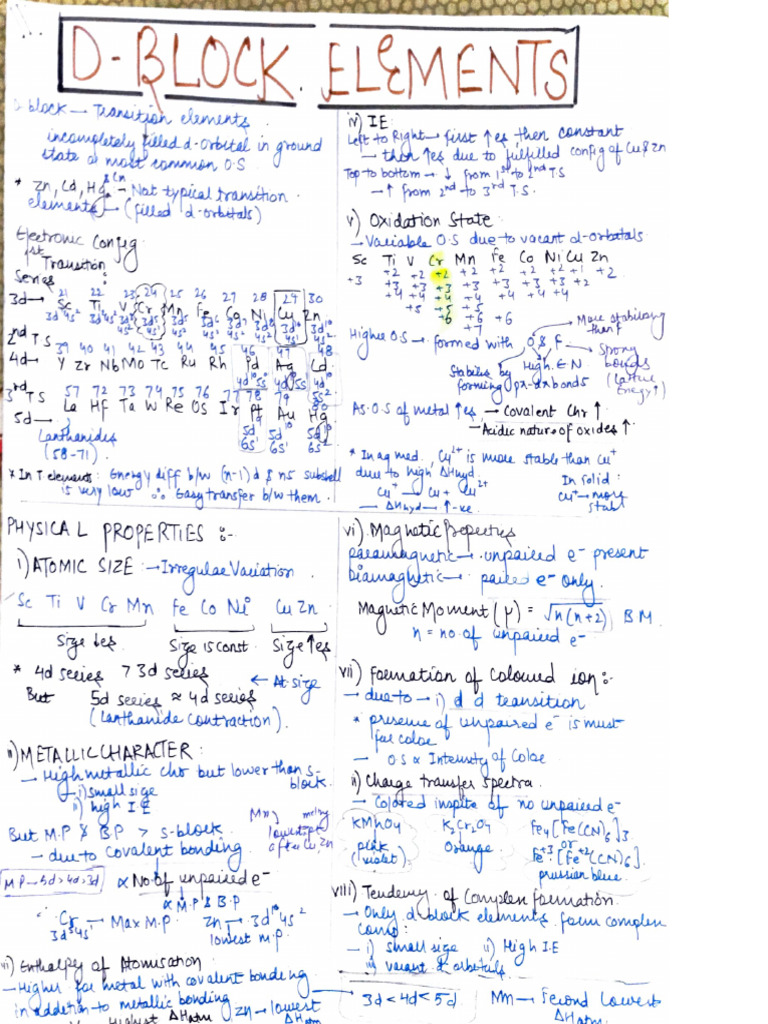 D-BLOCK ELEMENTS
block → Transition elements
incompletely filled d-orbital in ground
state or most common O.S
* Zn, Cd, Hg & Cn → Not typical transition
elements → (filled d-orbitals)
Electronic Config
1st Transition
Series:
21 22 23 24 25 26 27 28 29 30
3d → Sc Ti V Cr Mn Fe Co Ni Cu Zn
2nd TS
39 40 41 42 43 44 45 46 47 48
4d → Y Zr Nb Mo Tc Ru Rh Pd Ag Cd
3rd TS 57 72 73 74 75 76 77 78 79
La Hf Ta W Re Os Ir Pt Au Hg
5d →
Lanthanides
(58-71)
* In T elements: Energy diff b/w (n-1)d & ns subshell
is very low ∴ Easy transfer b/w them.
PHYSICAL PROPERTIES :-
i) ATOMIC SIZE → Irregular Variation
Sc Ti V Cr Mn Fe Co Ni Cu Zn
Size ↓es Size is const. Size ↑es
* 4d series > 3d series ← At. size
But 5d series ≈ 4d series
(Lanthanide contraction).
ii) METALLIC CHARACTER:
→ High metallic chr but lower than s-
block.
i) small size
ii) high I E
But M.P & BP > s-block
→ due to covalent bonding
Mn) melting
lowest pt
after Cu, Zn
M P → 5d > 4d > 3d
∝ No. of unpaired e-
∝ M.P & B.P
Cr → Max M.P. Zn → 3d¹⁰ 4s²
3d⁵4s¹ lowest m.p.
Enthalpy of Atomisation
→ Higher for metal with covalent bonding
in addition to metallic bonding
Highest ΔHatm Zn → lowest
ΔHatm
3d < 4d < 5d
iv) IE:
Left to Right → first ↑es, then constant
→ then ↑es due to fulfilled config of Cu & Zn
Top to bottom → ↓ from 1st to 2nd TS
→ ↑ from 2nd to 3rd T.S.
v) Oxidation State:
→ Variable O.S due to vacant d-orbitals
Sc Ti V Cr Mn Fe Co Ni Cu Zn
+2 +2 +2 +2 +2 +2 +2 +1 +2
+3 +3 +3 +3 +3 +3 +3 +3 +2
+4 +4 +4 +4 +4 +4 +4
+5 +5
+6 +6 +6
+7
Higher O.S → formed with O & F
More stabilizing
than F
Strong
bonds
(Lattice
Energy↑)
High E N
Stabilise by
forming pπ-dπ bonds
As O.S of metal ↑es → Covalent Chr ↑
→ Acidic nature of oxides ↑
* In aq med., Cu²⁺ is more stable than Cu⁺
due to high ΔHhyd.
Cu⁺ → Cu + Cu²⁺
→ ΔHhyd → ↑-ve
In solid:
Cu⁺ → more
stabl
vi) Magnetic Properties
paramagnetic → unpaired e- present
Diamagnetic → paired e- only.
Magnetic Moment (μ) = √n(n+2) BM.
n = no. of unpaired e-
vii) formation of coloured ion:-
→ due to → i) d d transition
* presence of unpaired e- is must
for color
→ O.S ∝ Intensity of Color
ii) Charge transfer spectra
→ Colored inspite of no unpaired e-
KMnO4 K2Cr2O4 Fe4[Fe(CN)6]3
pink Orange or
(violet) Fe+3[Fe+2(CN)6]
prussian blue.
viii) Tendency of Complex formation
→ Only d-block elements form complex
comp:
→ i) small size ii) High I.E
iii) vacant d orbitals
Mn → Second Lowest
ΔHatm